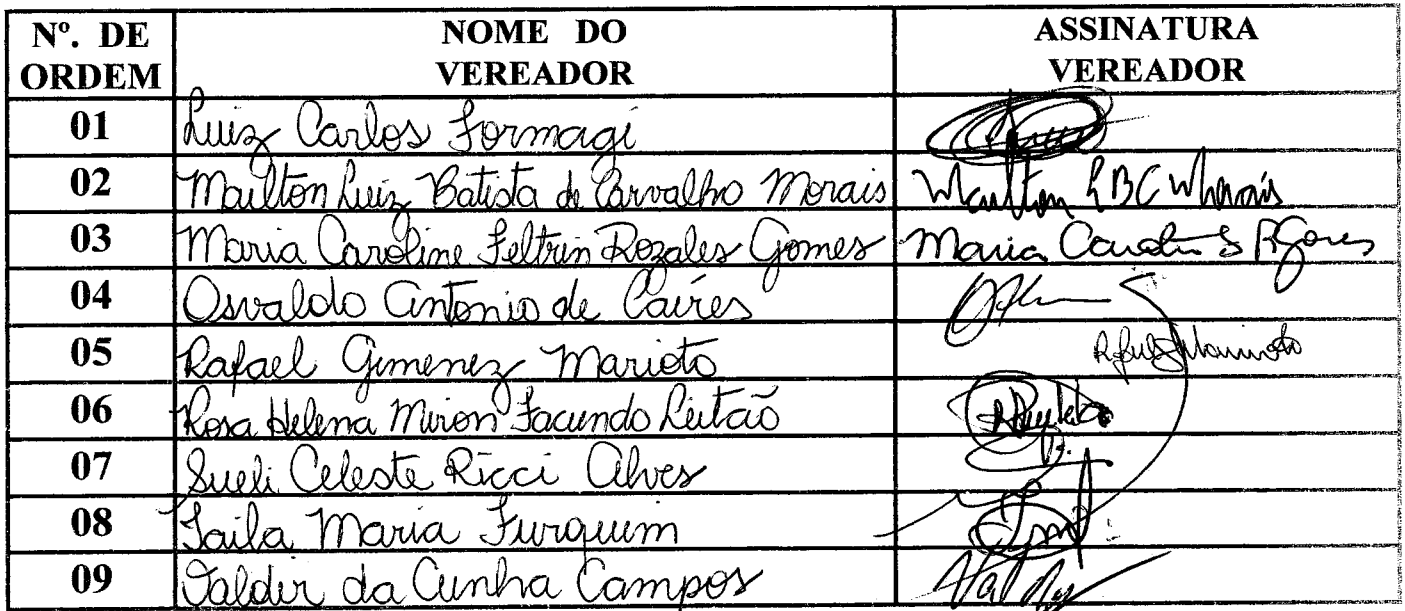 Nº. DE ORDEM NOME DO VEREADOR ASSINATURA VEREADOR
01 Luiz Carlos Formagi
02 Mailton Luiz Batista de Carvalho Morais Mailton LBC Morais
03 Maria Caroline Feltrin Rozales Gomes Maria Carolin F R Gomes
04 Osvaldo Antonio de Caires
05 Rafael Gimenez Marioto
06 Rosa Helena Miron Facundo Leitão
07 Sueli Celeste Ricci Alves
08 Taila Maria Furquim
09 Valdir da Cunha Campos